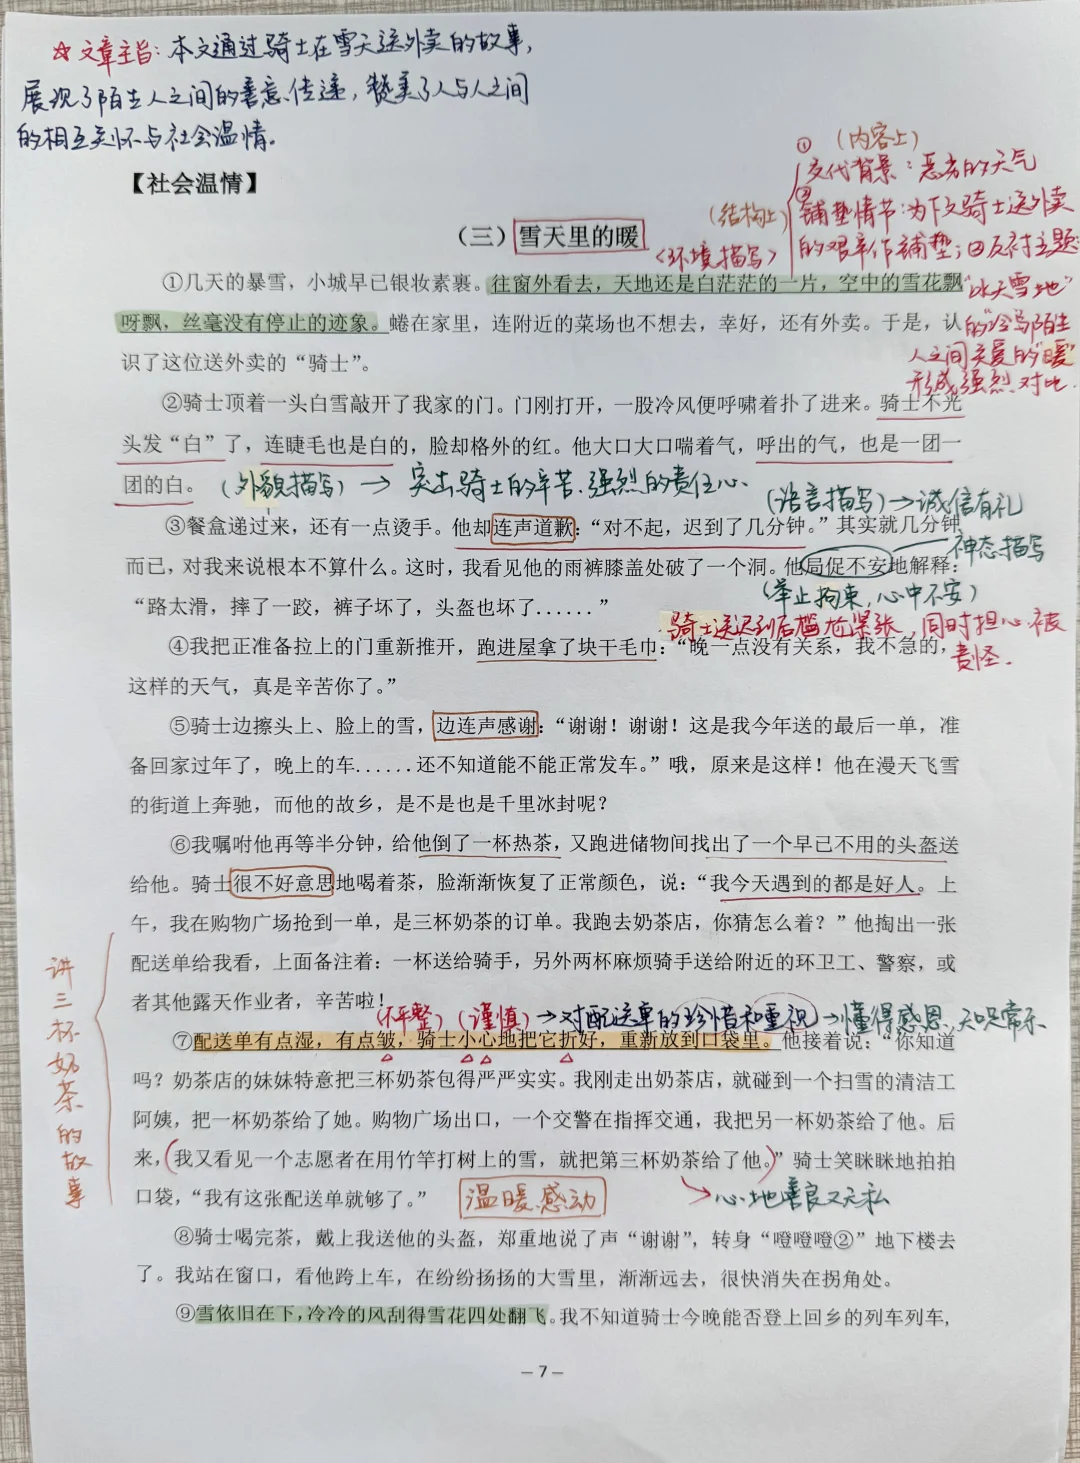 ☆文章主旨：本文通过骑士在雪天送外卖的故事，
展现了陌生人之间的善意传递，赞美了人与人之间
的相互关怀与社会温情。
【社会温情】
① (内容上)
交代背景：恶劣的天气
(结构上)
②铺垫情节：为下文骑士送外卖
的艰辛作铺垫；
反衬主题
“冰天雪地”
的“冷”与陌生
人之间关爱的“暖”
形成强烈对比
(三) 雪天里的暖
〈环境描写〉
①几天的暴雪，小城早已银妆素裹。往窗外看去，天地还是白茫茫的一片，空中的雪花飘
呀飘，丝毫没有停止的迹象。蜷在家里，连附近的菜场也不想去，幸好，还有外卖。于是，认
识了这位送外卖的“骑士”。
②骑士顶着一头白雪敲开了我家的门。门刚打开，一股冷风便呼啸着扑了进来。骑士不光
头发“白”了，连睫毛也是白的，脸却格外的红。他大口大口喘着气，呼出的气，也是一团一
团的白。
(外貌描写)→突出骑士的辛苦、强烈的责任心。
(语言描写)→诚信有礼
③餐盒递过来，还有一点烫手。他却连声道歉：“对不起，迟到了几分钟。”其实就几分钟
神态描写
而已，对我来说根本不算什么。这时，我看见他的雨裤膝盖处破了一个洞。他局促不安地解释：
(举止拘束，心中不安)
“路太滑，摔了一跤，裤子坏了，头盔也坏了......”
骑士送迟到后尴尬紧张，同时担心被
责怪。
④我把正准备拉上的门重新推开，跑进屋拿了块干毛巾：“晚一点没有关系，我不急的，
这样的天气，真是辛苦你了。”
⑤骑士边擦头上、脸上的雪，边连声感谢：“谢谢！谢谢！这是我今年送的最后一单，准
备回家过年了，晚上的车......还不知道能不能正常发车。”哦，原来是这样！他在漫天飞雪
的街道上奔驰，而他的故乡，是不是也是千里冰封呢？
⑥我嘱咐他再等半分钟，给他倒了一杯热茶，又跑进储物间找出了一个早已不用的头盔送
给他。骑士很不好意思地喝着茶，脸渐渐恢复了正常颜色，说：“我今天遇到的都是好人。上
午，我在购物广场抢到一单，是三杯奶茶的订单。我跑去奶茶店，你猜怎么着？”他掏出一张
配送单给我看，上面备注着：一杯送给骑手，另外两杯麻烦骑手送给附近的环卫工、警察，或
者其他露天作业者，辛苦啦！
讲三杯奶茶的故事
(不平整) (谨慎)→对配送单的珍惜和重视→懂得感恩
⑦配送单有点湿，有点皱，骑士小心地把它折好，重新放到口袋里。他接着说：“你知道
吗？奶茶店的妹妹特意把三杯奶茶包得严严实实。我刚走出奶茶店，就碰到一个扫雪的清洁工
阿姨，把一杯奶茶给了她。购物广场出口，一个交警在指挥交通，我把另一杯奶茶给了他。后
来，(我又看见一个志愿者在用竹竿打树上的雪，就把第三杯奶茶给了他。)”骑士笑眯眯地拍拍
口袋，“我有这张配送单就够了。”
温暖、感动
心地善良又无私
⑧骑士喝完茶，戴上我送他的头盔，郑重地说了声“谢谢”，转身“噔噔噔②”地下楼去
了。我站在窗口，看他跨上车，在纷纷扬扬的大雪里，渐渐远去，很快消失在拐角处。
⑨雪依旧在下，冷冷的风刮得雪花四处翻飞。我不知道骑士今晚能否登上回乡的列车列车，
— 7 —